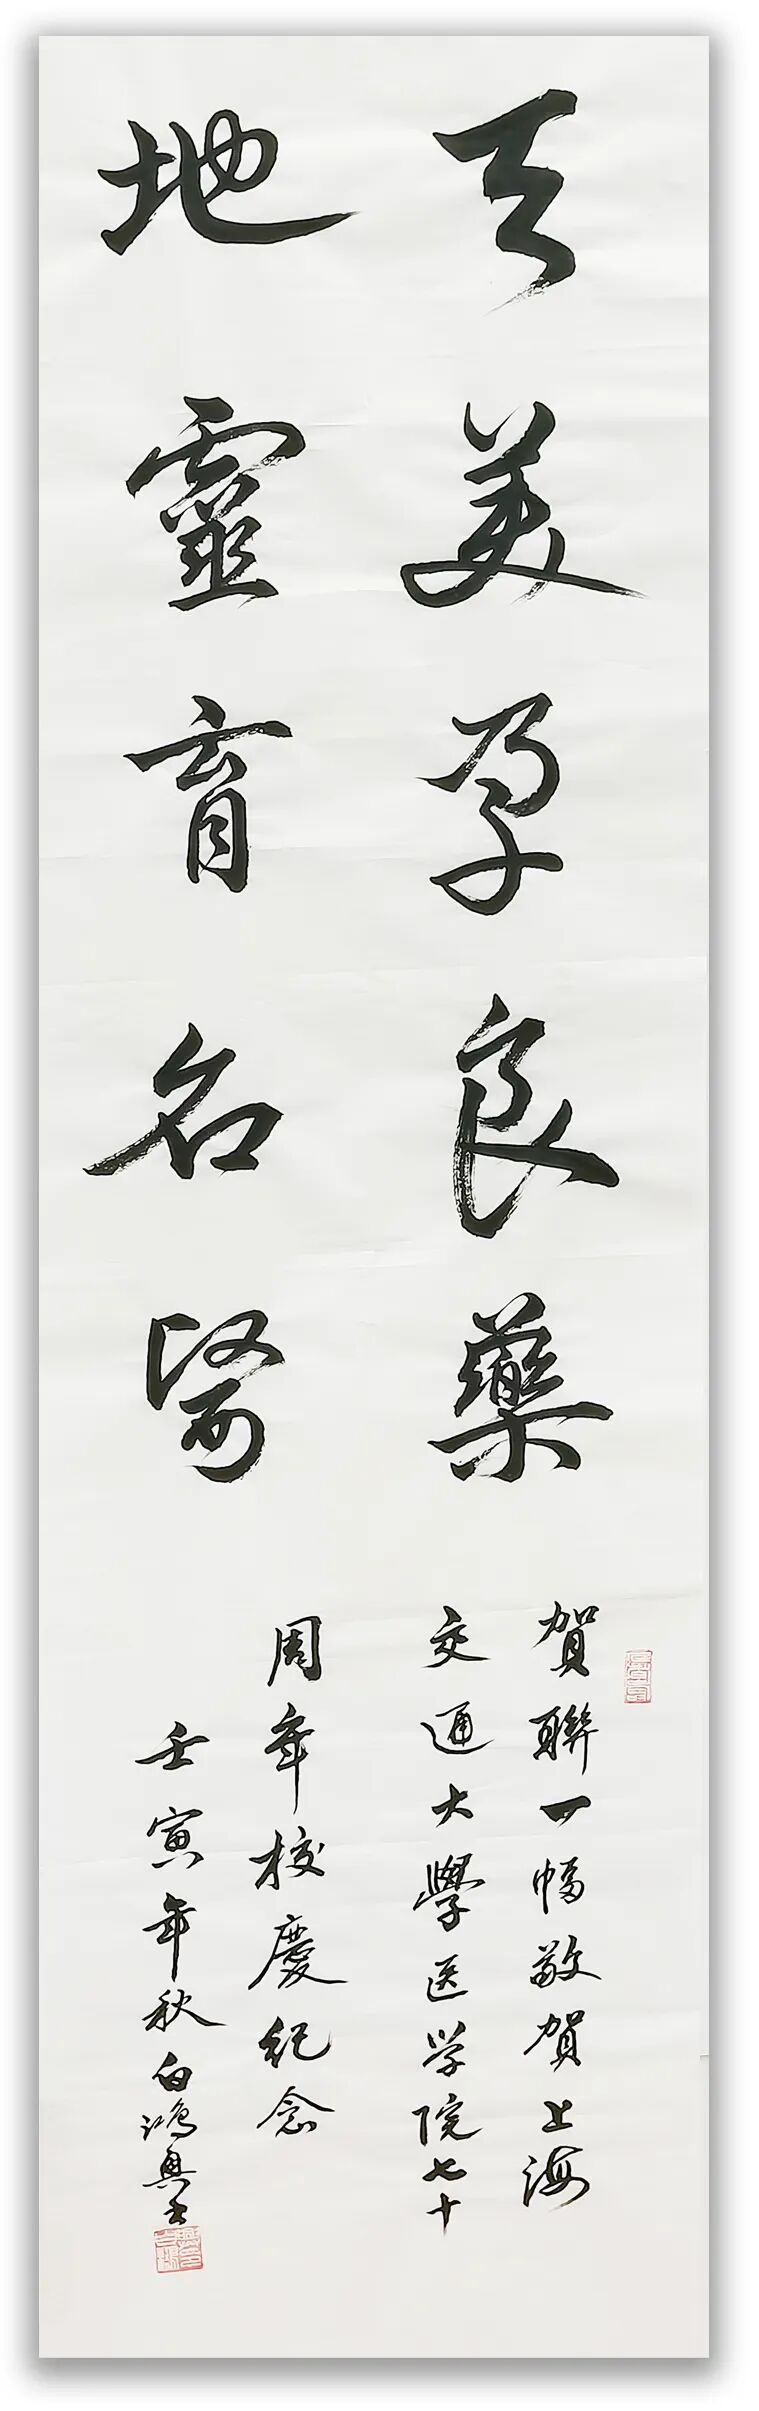 天美孕良藥
地靈育名醫
賀聯一幅敬賀上海
交通大學医学院七十
周年校慶纪念
壬寅年秋白鴻典书